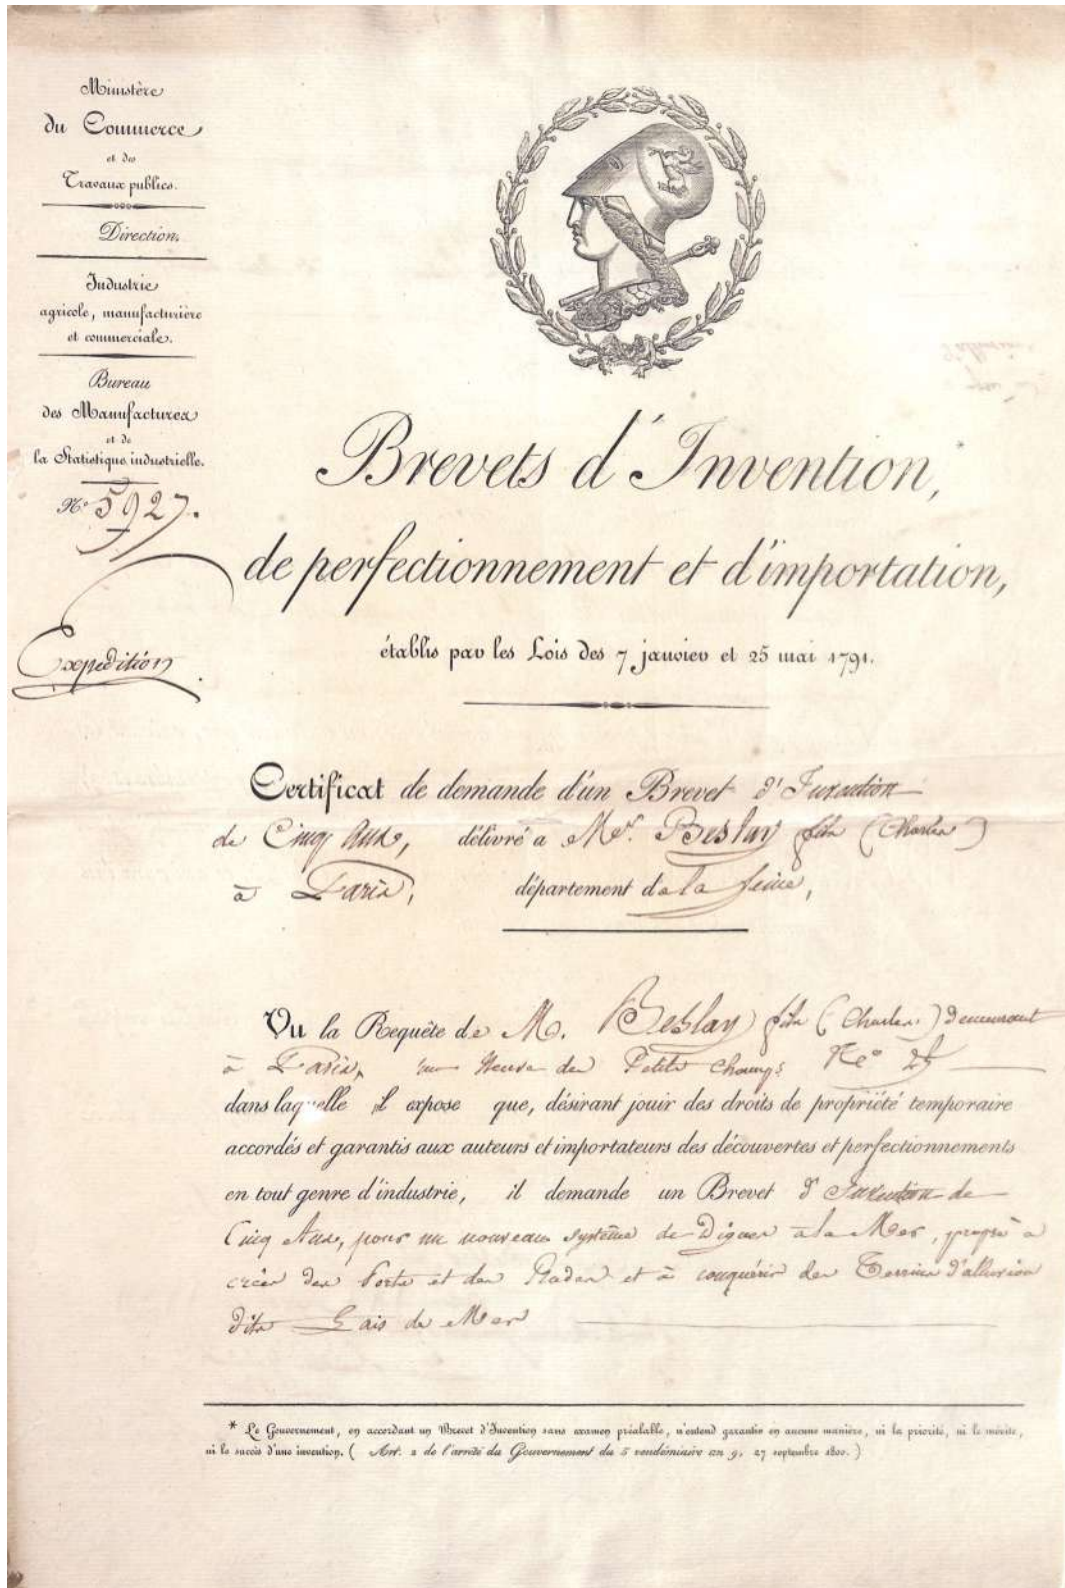 Ministère
du Commerce
et des
Travaux publics.
Direction.
Industrie
agricole, manufacturière
et commerciale.
Bureau
des Manufactures
et de
la Statistique industrielle.
N.º 5927.
Expédition
Brevets d'Invention,*
de perfectionnement et d'importation,
établis par les Lois des 7 janvier et 25 mai 1791.
Certificat de demande d'un Brevet d'Invention
de Cinq Ans, délivré a Mr. Beslay fils (Charles)
à Paris, département de la Seine,
Vu la Requête de M. Beslay fils (Charles) demeurant
à Paris, rue Neuve des Petits Champs No
dans laquelle il expose que, désirant jouir des droits de propriété temporaire
accordés et garantis aux auteurs et importateurs des découvertes et perfectionnements
en tout genre d'industrie, il demande un Brevet d'Invention de
Cinq Ans, pour un nouveau système de Digues à la Mer, propre à
créer des Ports et des Rades et à conquérir des Terrains d'alluvion
dits Lais de Mer
* Le Gouvernement, en accordant un Brevet d'Invention sans examen préalable, n'entend garantir en aucune manière, ni la priorité, ni le mérite,
ni le succès d'une invention. (Art. 2 de l'arrêté du Gouvernement du 5 vendémiaire an 9, 27 septembre 1800.)